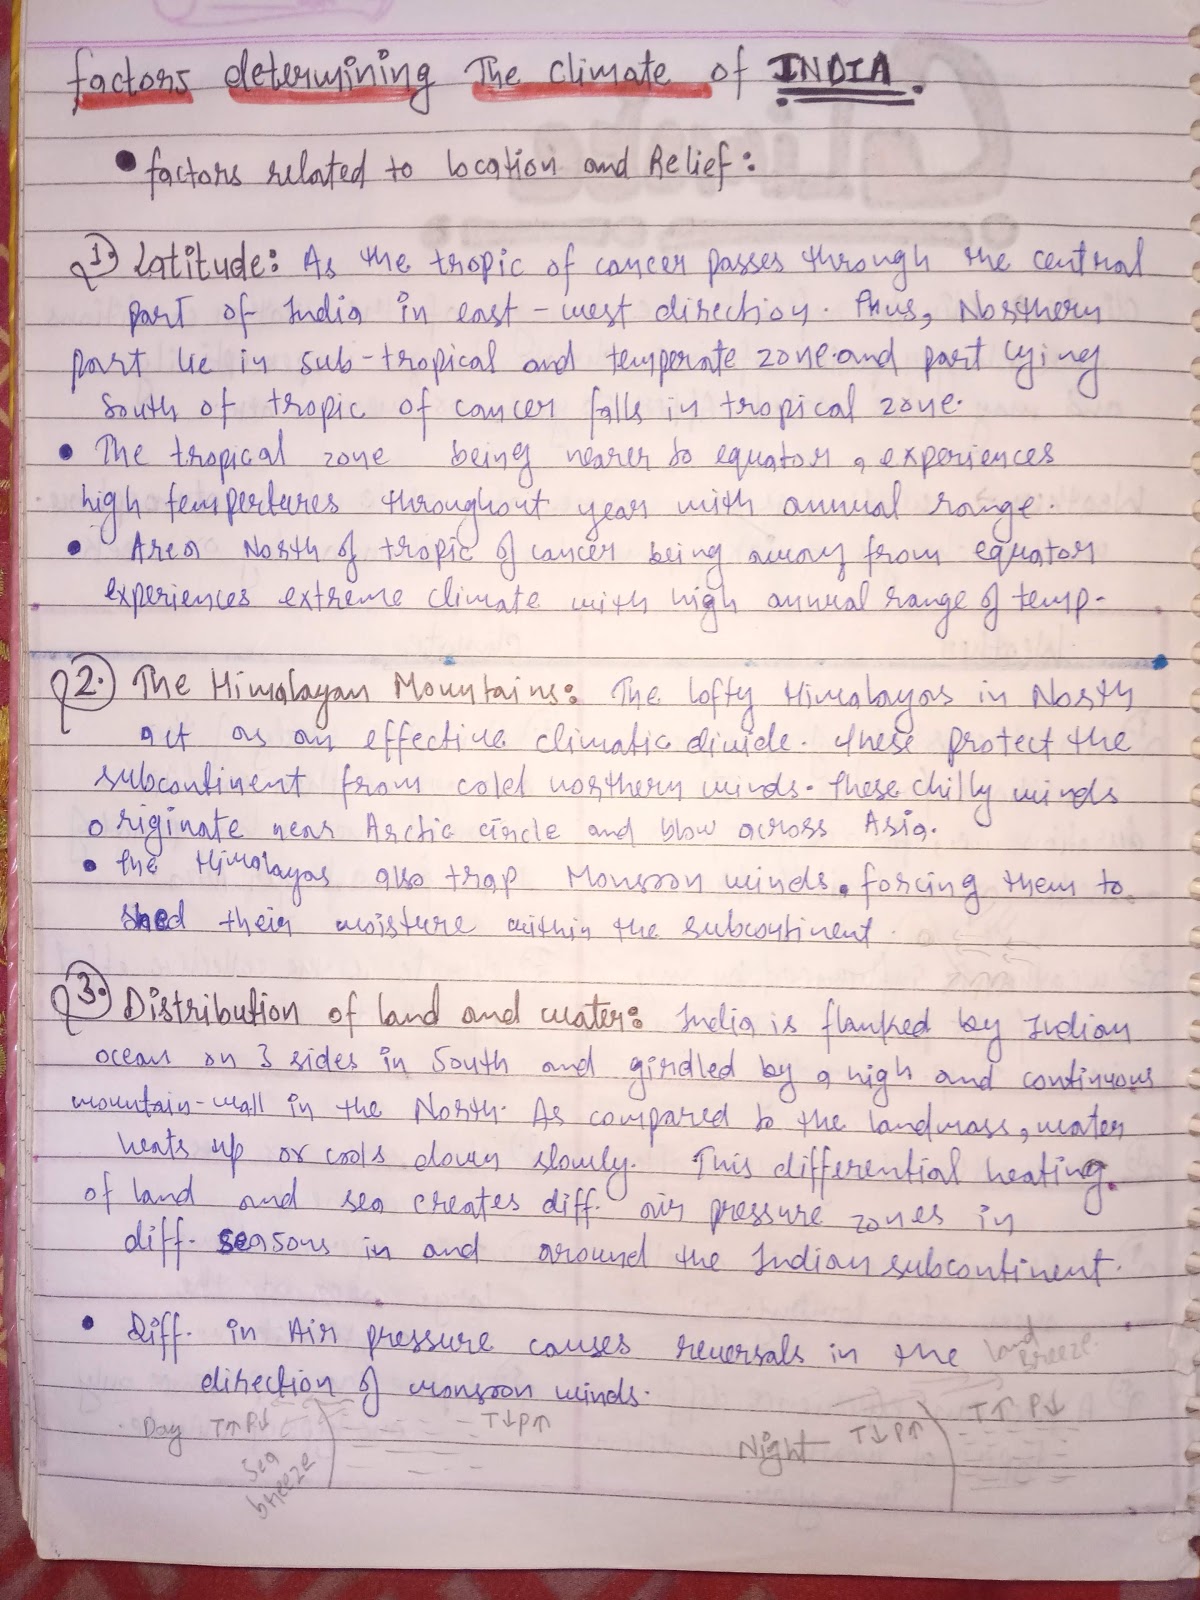 factors determining The Climate of INDIA.
• factors related to location and Relief:
1. Latitude: As the tropic of cancer passes through the central
part of India in east-west direction. Thus, Northern
part lie in sub-tropical and temperate zone and part lying
South of tropic of cancer falls in tropical zone.
• The tropical zone being nearer to equator, experiences
high tempertures throughout year with annual range.
• Area North of tropic of cancer being away from equator
experiences extreme climate with high annual range of temp.
2. The Himalayan Mountains: The lofty Himalayas in North
act as an effective climatic divide. These protect the
subcontinent from cold northern winds. These chilly winds
originate near Arctic circle and blow across Asia.
• the Himalayas also trap Monsoon winds. forcing them to
shed their moisture within the subcontinent.
3. Distribution of land and water: India is flanked by Indian
ocean on 3 sides in South and girdled by a high and continuous
mountain-wall in the North. As compared to the landmass, water
heats up or cools down slowly. This differential heating
of land and sea creates diff. air pressure zones in
diff. seasons in and around the Indian subcontinent.
• Diff. in Air pressure causes reversals in the
direction of monsoon winds.
land
Breeze.
Day T↑P↓ T↓P↑
Sea
breeze
Night T↓P↑ T↑ P↓